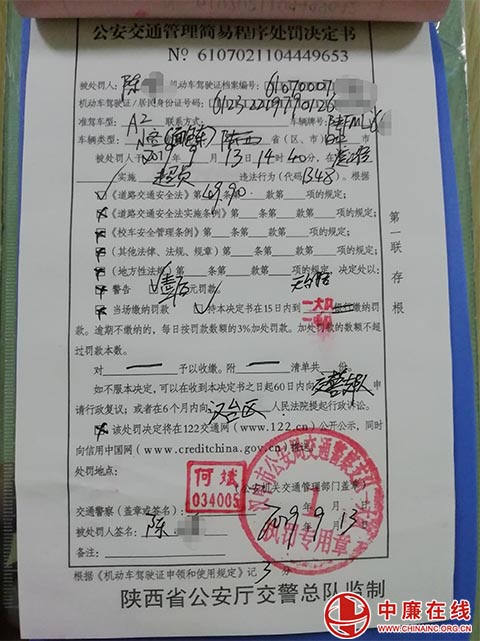 公安交通管理简易程序处罚决定书
No 6107021104449653
被处罚人: 陈 机动车驾驶证档案编号: 61070007
机动车驾驶证/居民身份证号码:
准驾车型: A2 联系方式: 车辆牌号:
车辆类型: 陕西 省(区、市)
被处罚人于 2019 年 9 月 13 日 14 时 40 分,在
实施 超员 违法行为(代码1348)。根据
《道路交通安全法》第 49.90 条 款第 项的规定;
《道路交通安全法实施条例》第 条 款第 项的规定;
《校车安全管理条例》第 条 款第 项的规定;
(其他法律、法规、规章)第 条 款第 项的规定;
(地方性法规)第 条 款第 项的规定,决定处以:
警告 元罚款。
当场缴纳罚款 持本决定书在15日内到 银行缴纳罚
款。逾期不缴纳的,每日按罚款数额的3%加处罚款。加处罚款的数额不超
过罚款本数。
对 予以收缴。附 清单共 份。
如不服本决定,可以在收到本决定书之日起60日内向 交警支队 申
请行政复议;或者在6个月内向 汉台区 人民法院提起行政诉讼。
该处罚决定将在122交通网(www.122.cn)公开公示,同时
向信用中国网(www.creditchina.gov.cn)推送。
处罚地点:
何斌
034005
(公安机关交通管理部门盖章)
交通警察(盖章或签名): 年 月 日
被处罚人签名: 陈 2019.9.13
备注:
执罚专用章
1
根据《机动车驾驶证申领和使用规定》记 3 分
陕西省公安厅交警总队监制
第一联 存根
中廉在线
WWW.CHINAINC.ORG.CN